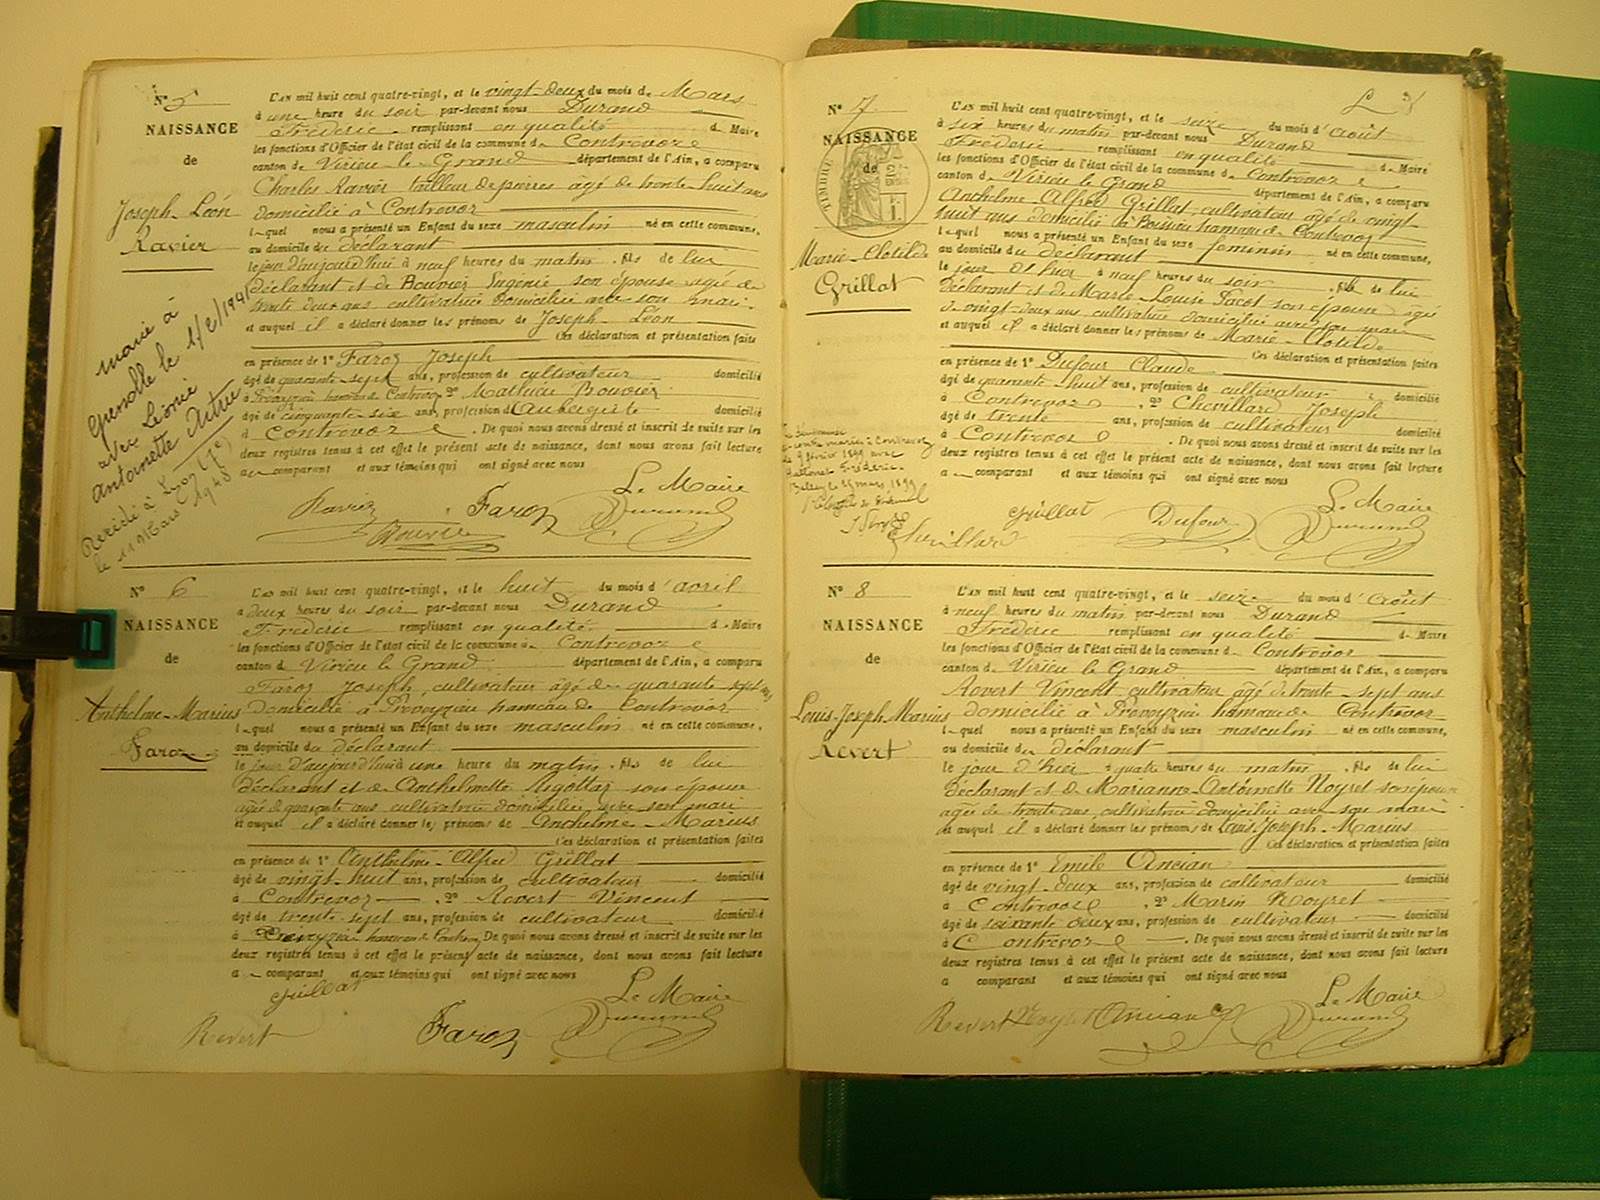 N° 5
NAISSANCE
de
Joseph-Léon
Ravier
marié à
Grenoble le 1/2/1941
avec Léonie
Antoinette
Décédé à Lyon
le 11 Mars 1948
L'AN mil huit cent quatre-vingt, et le vingt-deux du mois de Mars
à une heure du soir par-devant nous Durand
Frédéric remplissant en qualité de Maire
les fonctions d'Officier de l'état civil de la commune de Contrevoz
canton de Virieu le Grand département de l'Ain, a comparu
Charles Ravier tailleur de pierres âgé de trente-huit ans
domicilié à Contrevoz
lequel nous a présenté un Enfant du sexe masculin né en cette commune,
au domicile du déclarant
le jour d'aujourd'hui à neuf heures du matin fils de lui
déclarant et de Bouvier Eugénie son épouse âgée de
trente deux ans cultivatrice domiciliée avec son mari
et auquel il a déclaré donner les prénoms de Joseph-Léon
Ces déclaration et présentation faites
en présence de 1° Faroz Joseph
âgé de quarante-sept ans, profession de cultivateur domicilié
à Provoyzieu hameau de Contrevoz 2° Mathieu Bouvier
âgé de cinquante-six ans, profession d'Aubergiste domicilié
à Contrevoz. De quoi nous avons dressé et inscrit de suite sur les
deux registres tenus à cet effet le présent acte de naissance, dont nous avons fait lecture
au comparant et aux témoins qui ont signé avec nous
Le Maire
Ravier Faroz Durand
Bouvier
N° 6
NAISSANCE
de
Anthelme-Marius
Faroz
L'AN mil huit cent quatre-vingt, et le huit du mois d'avril
à deux heures du soir par-devant nous Durand
Frédéric remplissant en qualité de Maire
les fonctions d'Officier de l'état civil de la commune de Contrevoz
canton de Virieu le Grand département de l'Ain, a comparu
Faroz Joseph, cultivateur âgé de quarante-sept ans
domicilié à Provoyzieu hameau de Contrevoz
lequel nous a présenté un Enfant du sexe masculin né en cette commune,
au domicile du déclarant
le jour d'aujourd'hui à une heure du matin fils de lui
déclarant et de Anthelmette son épouse
âgée de quarante ans cultivatrice domiciliée avec son mari
et auquel il a déclaré donner les prénoms de Anthelme-Marius
Ces déclaration et présentation faites
en présence de 1° Anthelme-Alfred Grillat
âgé de vingt-huit ans, profession de cultivateur domicilié
à Contrevoz, 2° Revert Vincent
âgé de trente-sept ans, profession de cultivateur domicilié
à Provoyzieu hameau de Contrevoz De quoi nous avons dressé et inscrit de suite sur les
deux registres tenus à cet effet le présent acte de naissance, dont nous avons fait lecture
au comparant et aux témoins qui ont signé avec nous
Grillat Le Maire
Revert Faroz Durand
N° 7
NAISSANCE
de
TIMBRE
Marie-Clotilde
Grillat
L'AN mil huit cent quatre-vingt, et le seize du mois d'août
à six heures du matin par-devant nous Durand
Frédéric remplissant en qualité de Maire
les fonctions d'Officier de l'état civil de la commune de Contrevoz
canton de Virieu le Grand département de l'Ain, a comparu
Anthelme-Alfred Grillat cultivateur âgé de vingt-
huit ans domicilié à Boissieu hameau de Contrevoz
lequel nous a présenté un Enfant du sexe féminin né en cette commune,
au domicile du déclarant
le jour d'hier à neuf heures du soir fille de lui
déclarant et de Marie-Louise Jacet son épouse âgée
de vingt-deux ans cultivatrice domiciliée avec son mari
et auquel il a déclaré donner les prénoms de Marie-Clotilde
Ces déclaration et présentation faites
en présence de 1° Dufour Claude
âgé de quarante huit ans, profession de cultivateur domicilié
à Contrevoz, 2° Chevillard Joseph
âgé de trente ans, profession de cultivateur domicilié
à Contrevoz. De quoi nous avons dressé et inscrit de suite sur les
deux registres tenus à cet effet le présent acte de naissance, dont nous avons fait lecture
au comparant et aux témoins qui ont signé avec nous
Le Maire
Grillat Dufour Durand
Chevillard
N° 8
NAISSANCE
de
Louis-Joseph-Marius
Revert
L'AN mil huit cent quatre-vingt, et le seize du mois d'Août
à neuf heures du matin par-devant nous Durand
Frédéric remplissant en qualité de Maire
les fonctions d'Officier de l'état civil de la commune de Contrevoz
canton de Virieu le Grand département de l'Ain, a comparu
Revert Vincent cultivateur âgé de trente-sept ans
domicilié à Provoyzieu hameau de Contrevoz
lequel nous a présenté un Enfant du sexe masculin né en cette commune,
au domicile du déclarant
le jour d'hier à quatre heures du matin fils de lui
déclarant et de Marianne-Antoinette Noyret son épouse
âgée de trente ans, cultivatrice domiciliée avec son mari
et auquel il a déclaré donner les prénoms de Louis-Joseph-Marius
Ces déclaration et présentation faites
en présence de 1° Emile Ancian
âgé de vingt-deux ans, profession de cultivateur domicilié
à Contrevoz, 2° Marin Noyret
âgé de soixante deux ans, profession de cultivateur domicilié
à Contrevoz. De quoi nous avons dressé et inscrit de suite sur les
deux registres tenus à cet effet le présent acte de naissance, dont nous avons fait lecture
a comparant et aux témoins qui ont signé avec nous
Le Maire
Revert Noyret Ancian Durand